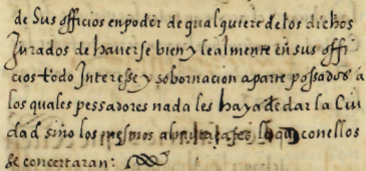 de Sus officios en poder de qualquiere de los dichos
Jurados de hauerse bien y lealmente en sus offi
cios todo Interesse y sobornacion aparte possados a
los quales pessadores nada les haya de dar la Ciu
dad sino los mesmos con ellos
se concertaran: